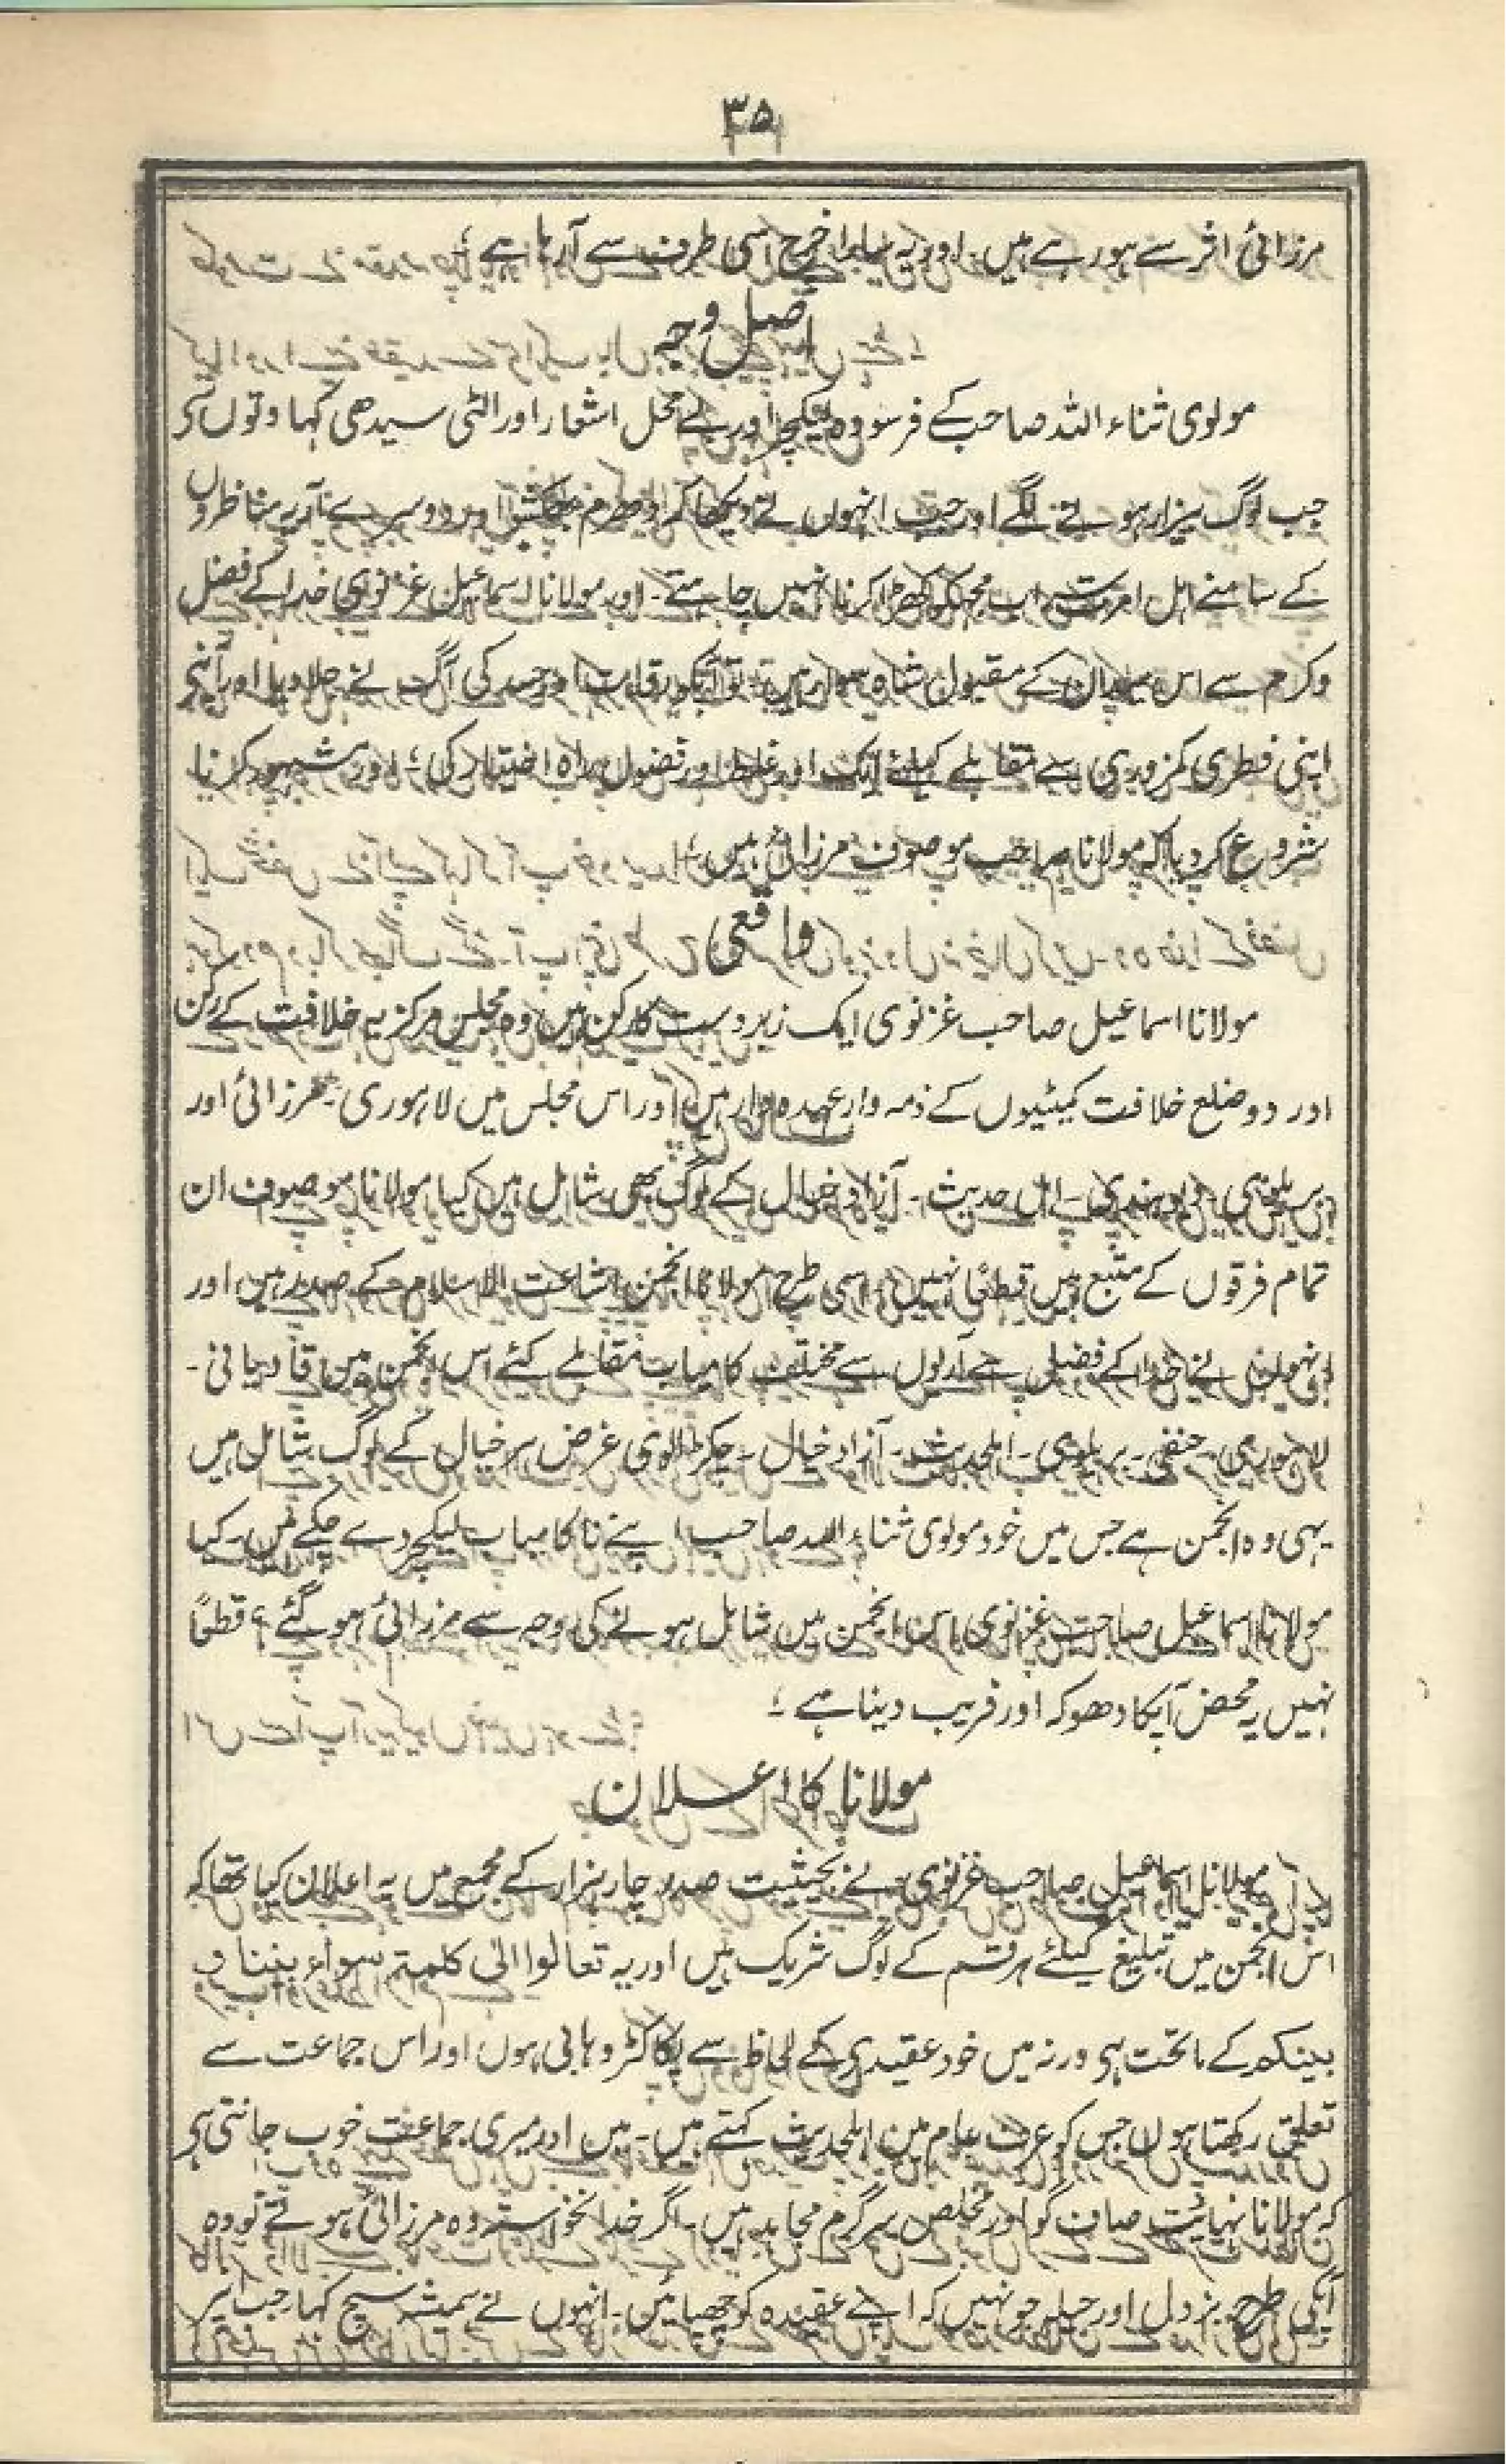 ۳۵
مرزائی اثر سے ہو رہے ہیں۔ اور یہ سارا خرچ اسی طرف سے آ رہا ہے ؛
اصل وجہ
مولوی ثناء اللہ صاحب کے فرسودہ لیکچر اور بے محل اشعار اور الٹی سیدھی کہاوتوں سے
جب لوگ بیزار ہونے لگے اور جب انہوں نے دیکھا کہ اور دوسرے آریہ مناظروں
کے سامنے اہل امرتسر اب مجھکو کھڑا کرنا نہیں چاہتے۔ اور مولانا اسماعیل غزنوی خدا کے فضل
وکرم سے اس میدان کے مقبول شاہ سوار ہیں تو آپکو رقابت اور حسد کی آگ نے جلا دیا اور آپنے
اپنی فطری کمزوری سے مقابلے کیلئے ایک اور غلط اور فضول راہ اختیار کی ؛ اور مشہور کرنا
شروع کر دیا کہ مولانا صاحب موصوف مرزائی ہیں ؛
واقعی
مولانا اسماعیل صاحب غزنوی ایک زبردست کارکن ہیں وہ مجلس مرکزیہ خلافت کے رکن
اور دو ضلع خلافت کمیٹیوں کے ذمہ وار عہدہ دار ہیں اور اس مجلس میں لاہوری۔ مرزائی اور
بریلوی۔ دیوبندی۔ اہل حدیث۔ آزاد خیال کے لوگ بھی شامل ہیں کیا مولانا موصوف ان
تمام فرقوں کے متبع ہیں قطعًا نہیں۔ اسی طرح مولانا انجمن اشاعت الاسلام کے صدر ہیں اور
انہوں نے خدا کے فضل سے آریوں سے مختلف کامیاب مقابلے کئے اس انجمن میں قادیانی۔
لاہوری۔ حنفی۔ بریلوی۔ اہلحدیث۔ آزاد خیال۔ چکڑالوی غرض ہر خیال کے لوگ شامل ہیں
۔یہی وہ انجمن ہے جس میں خود مولوی ثناء اللہ صاحب اپنے ناکامیاب لیکچر دے چکے ہیں۔ کیا
مولانا اسماعیل صاحب غزنوی اس انجمن میں شامل ہونے کی وجہ سے مرزائی ہو گئے ؟ قطعًا
نہیں یہ محض آپکا دھوکہ اور فریب دینا ہے ؛
مولانا کا اعلان
مولانا اسماعیل صاحب غزنوی نے بحیثیت صدر چار ہزار کے مجمع میں یہ اعلان کیا تھا کہ
اس انجمن میں تبلیغ کیلئے ہر قسم کے لوگ شریک ہیں اور یہ تعالوا الی کلمتہ سواء بیننا و
بینکم کے ماتحت ہی ورنہ میں خود عقیدی کے لحاظ سے پکا کٹر وہابی ہوں اور اس جماعت سے
تعلق رکھتا ہوں جس کو عرف عام میں اہلحدیث کہتے ہیں۔ میں اور میری جماعت خوب جانتی ہی
کہ مولانا نہائیت صاف گو اور مخلص سرگرم مجاہد ہیں۔ اگر خدا نخواستہ وہ مرزائی ہوتے تو وہ
آپکی طرح بزدل اور حیلہ جو نہیں کہ اپنے عقیدہ کو چھپائیں۔ انہوں نے ہمیشہ سچ کہا۔ جب